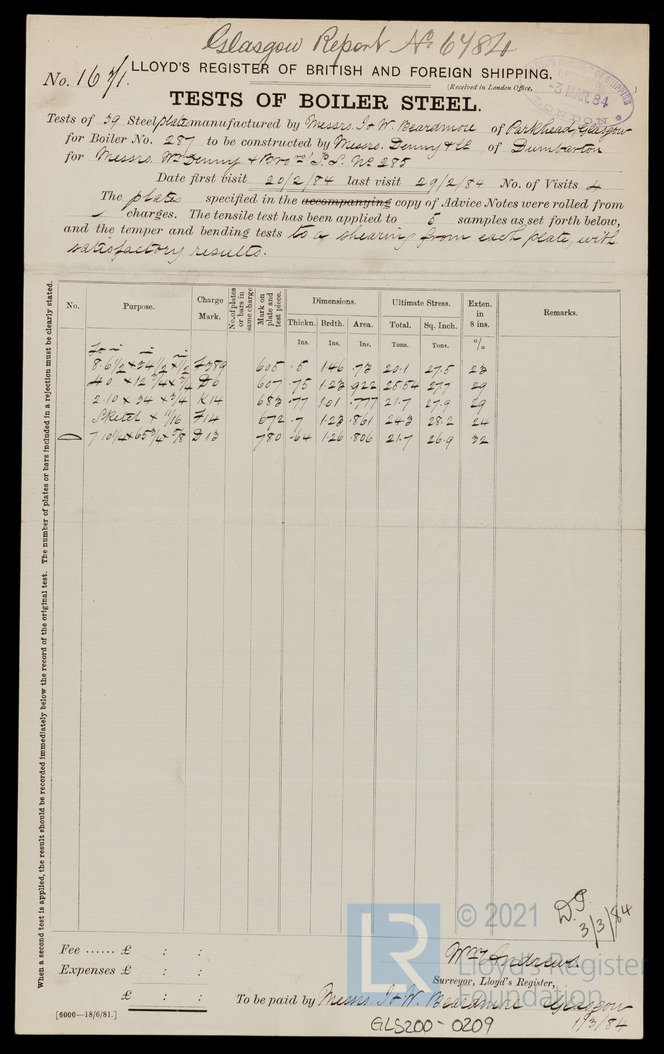 Glasgow Report No 6784
No. 167/1. LLOYD'S REGISTER OF BRITISH AND FOREIGN SHIPPING.
(Received in London Office,
3 MAR. 84
TESTS OF BOILER STEEL.
Tests of 39 Steel plates manufactured by Messrs. J & W. Beardmore of Parkhead, Glasgow
for Boiler No. 287 to be constructed by Messrs. Denny & Co of Dumbarton
for Messrs. Wm Denny & Bros' S.S. No 285
Date first visit 20/2/84 last visit 29/2/84 No. of Visits 4
The plates specified in the accompanying copy of Advice Notes were rolled from
charges. The tensile test has been applied to 5 samples as set forth below,
and the temper and bending tests to a shearing from each plate, with
satisfactory results.
No. Purpose. Charge Mark. No. of plates or bars in same charge Mark on plate and test piece. Dimensions. Ultimate Stress. Exten. in 8 ins. Remarks.
Thickn. Brdth. Area. Total. Sq. Inch.
Ins. Ins. Ins. Tons. Tons. %
8.6 1/2 × 34 1/2 × 1/2 F389 605 .5 1.46 .73 20.1 27.5 23
4.0 × 12 3/4 × 3/4 D6 607 .75 1.23 .922 25.54 27.7 29
2.10 × 34 × 3/4 K14 683 .77 1.01 .777 21.7 27.9 29
Sketch × 11/16 F14 672 .7 1.23 .861 24.3 28.2 24
7.10 1/4 × 65 3/4 × 5/8 D13 780 .64 1.26 .806 21.7 26.9 32
When a second test is applied, the result should be recorded immediately below the record of the original test. The number of plates or bars included in a rejection must be clearly stated.
D.P.
3/3/84
© 2021
LR
Lloyd's Register
Foundation
Fee ...... £ : :
Wm Andrews.
Expenses £ : :
Surveyor, Lloyd's Register,
£ : : To be paid by Messrs. J & W. Beardmore Glasgow
[6000—18/6/81.]
GLS200-0209
1/3/84